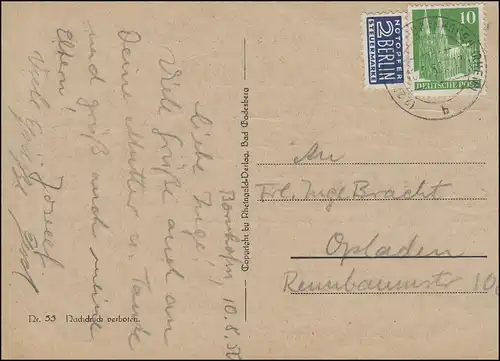 Bornhofen 10.8.50
Liebe Inge!
Viele Grüße auch an
Deine Mutter u. Tante
und grüß auch meine
Eltern!
Viele Grüße
Josef
Nr. 55 Nachdruck verboten.
Copyright by Rheingold-Verlag, Bad Godesberg
NOTOPFER
2 BERLIN
STEUERMARKE
10
DEUTSCHE POST
An
Frl. Inge Bracht
Opladen
Rennbaumstr 10